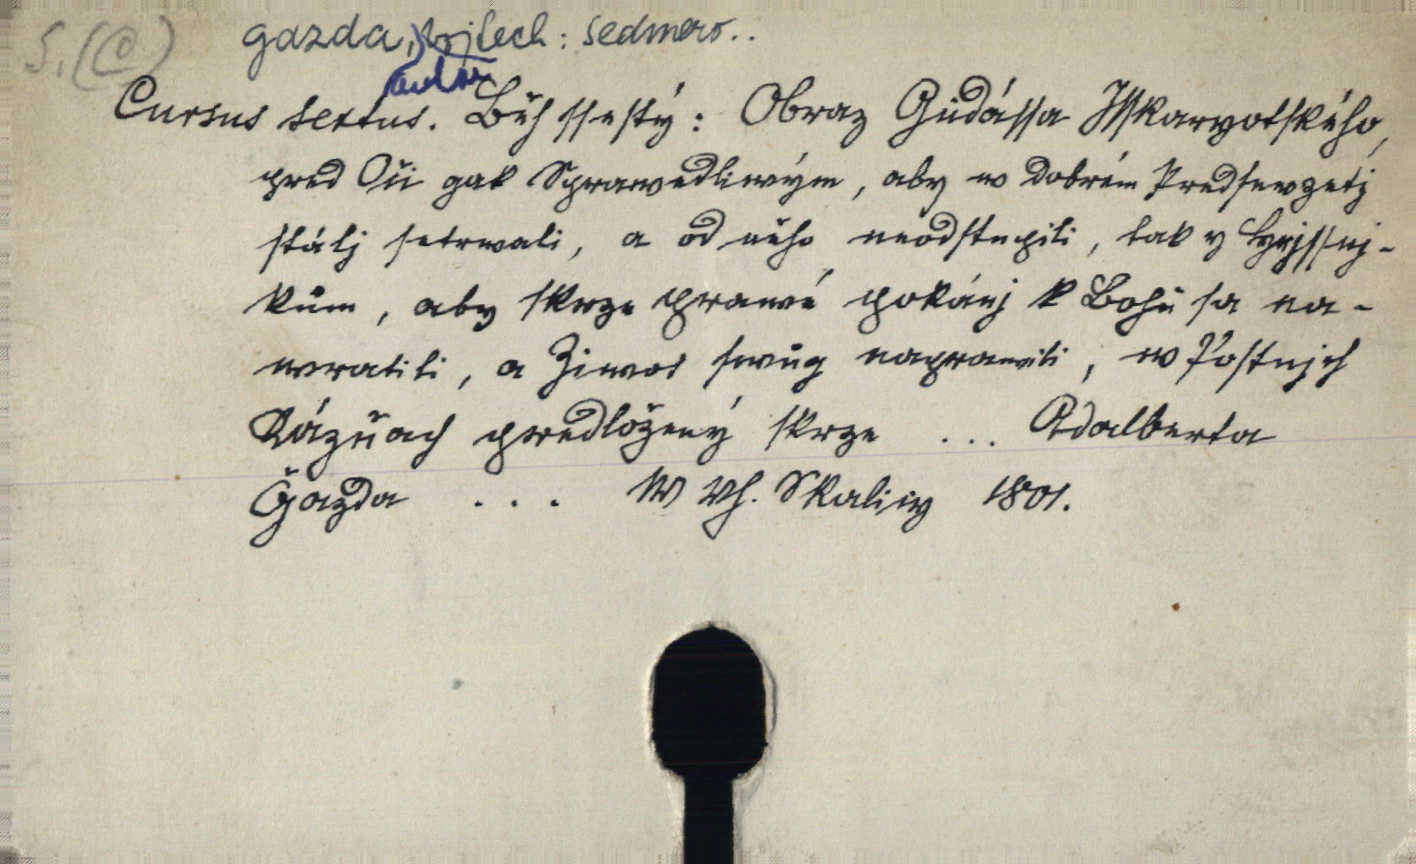 S. (C) gazda, Vojtech: Sedmero..
Cursus sextus. Běh ssestý: Obraz Gůdássa Isskaryotského,
pred Oči gak Sprawedliwým, aby w dobrém Predsewzetj
stálj setrwali, a od něho neodstupili, tak y Hrjssnj-
kům, aby skrze prawé pokánj k Bohu sa na-
wratili, a Ziwot swůg naprawili, w Postnjch
Kázňach predložený skrze ... Adalberta
Gazda ... W Uh. Skalicy 1801.